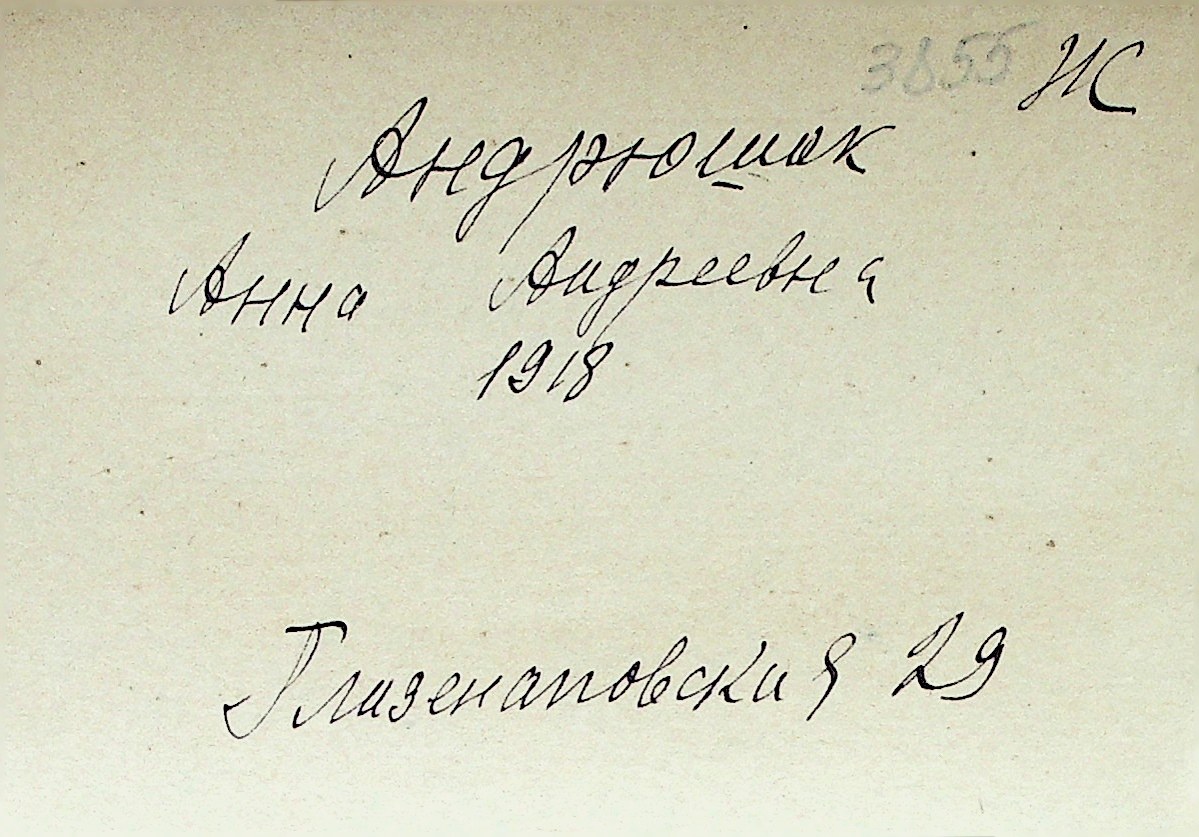 3855 Ж
Андрюшак
Анна Андреевна
1918
Глазенаповская 29